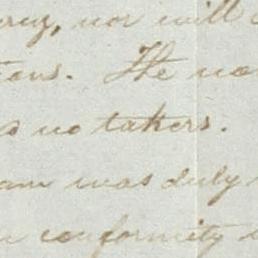 nor will
The no
no takers.
was duly
conformity